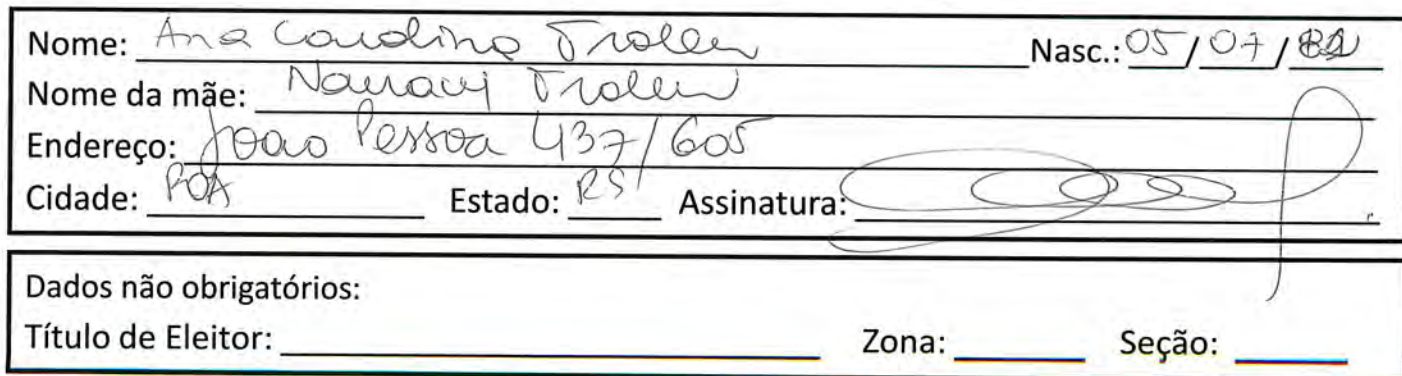 Nome: Ana Carolina Nasc.: 05/07/
Nome da mãe:
Endereço: João Pessoa 437/605
Cidade: POA Estado: RS Assinatura:
Dados não obrigatórios:
Título de Eleitor: Zona: Seção: